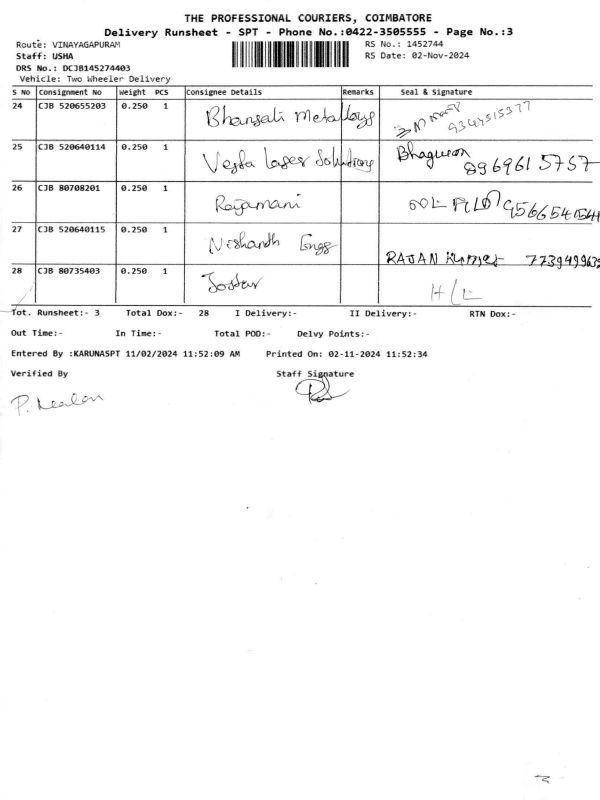 THE PROFESSIONAL COURIERS, COIMBATORE
Delivery Runsheet - SPT - Phone No.:0422-3505555 - Page No.:3
Route: VINAYAGAPURAM RS No.: 1452744
Staff: USHA RS Date: 02-Nov-2024
DRS No.: DCJB145274403
Vehicle: Two Wheeler Delivery
S No Consignment No Weight PCS Consignee Details Remarks Seal & Signature
24 CJB 520655203 0.250 1 Bhansali Metalloys
25 CJB 520640114 0.250 1 Vesta Laser Solutions Bhagwan 8969615757
26 CJB 80708201 0.250 1 Rajamani
27 CJB 520640115 0.250 1 Nishanth Engg RAJAN Kumar
28 CJB 80735403 0.250 1 H/L
Tot. Runsheet:- 3 Total Dox:- 28 I Delivery:- II Delivery:- RTN Dox:-
Out Time:- In Time:- Total POD:- Delvy Points:-
Entered By :KARUNASPT 11/02/2024 11:52:09 AM Printed On: 02-11-2024 11:52:34
Verified By Staff Signature